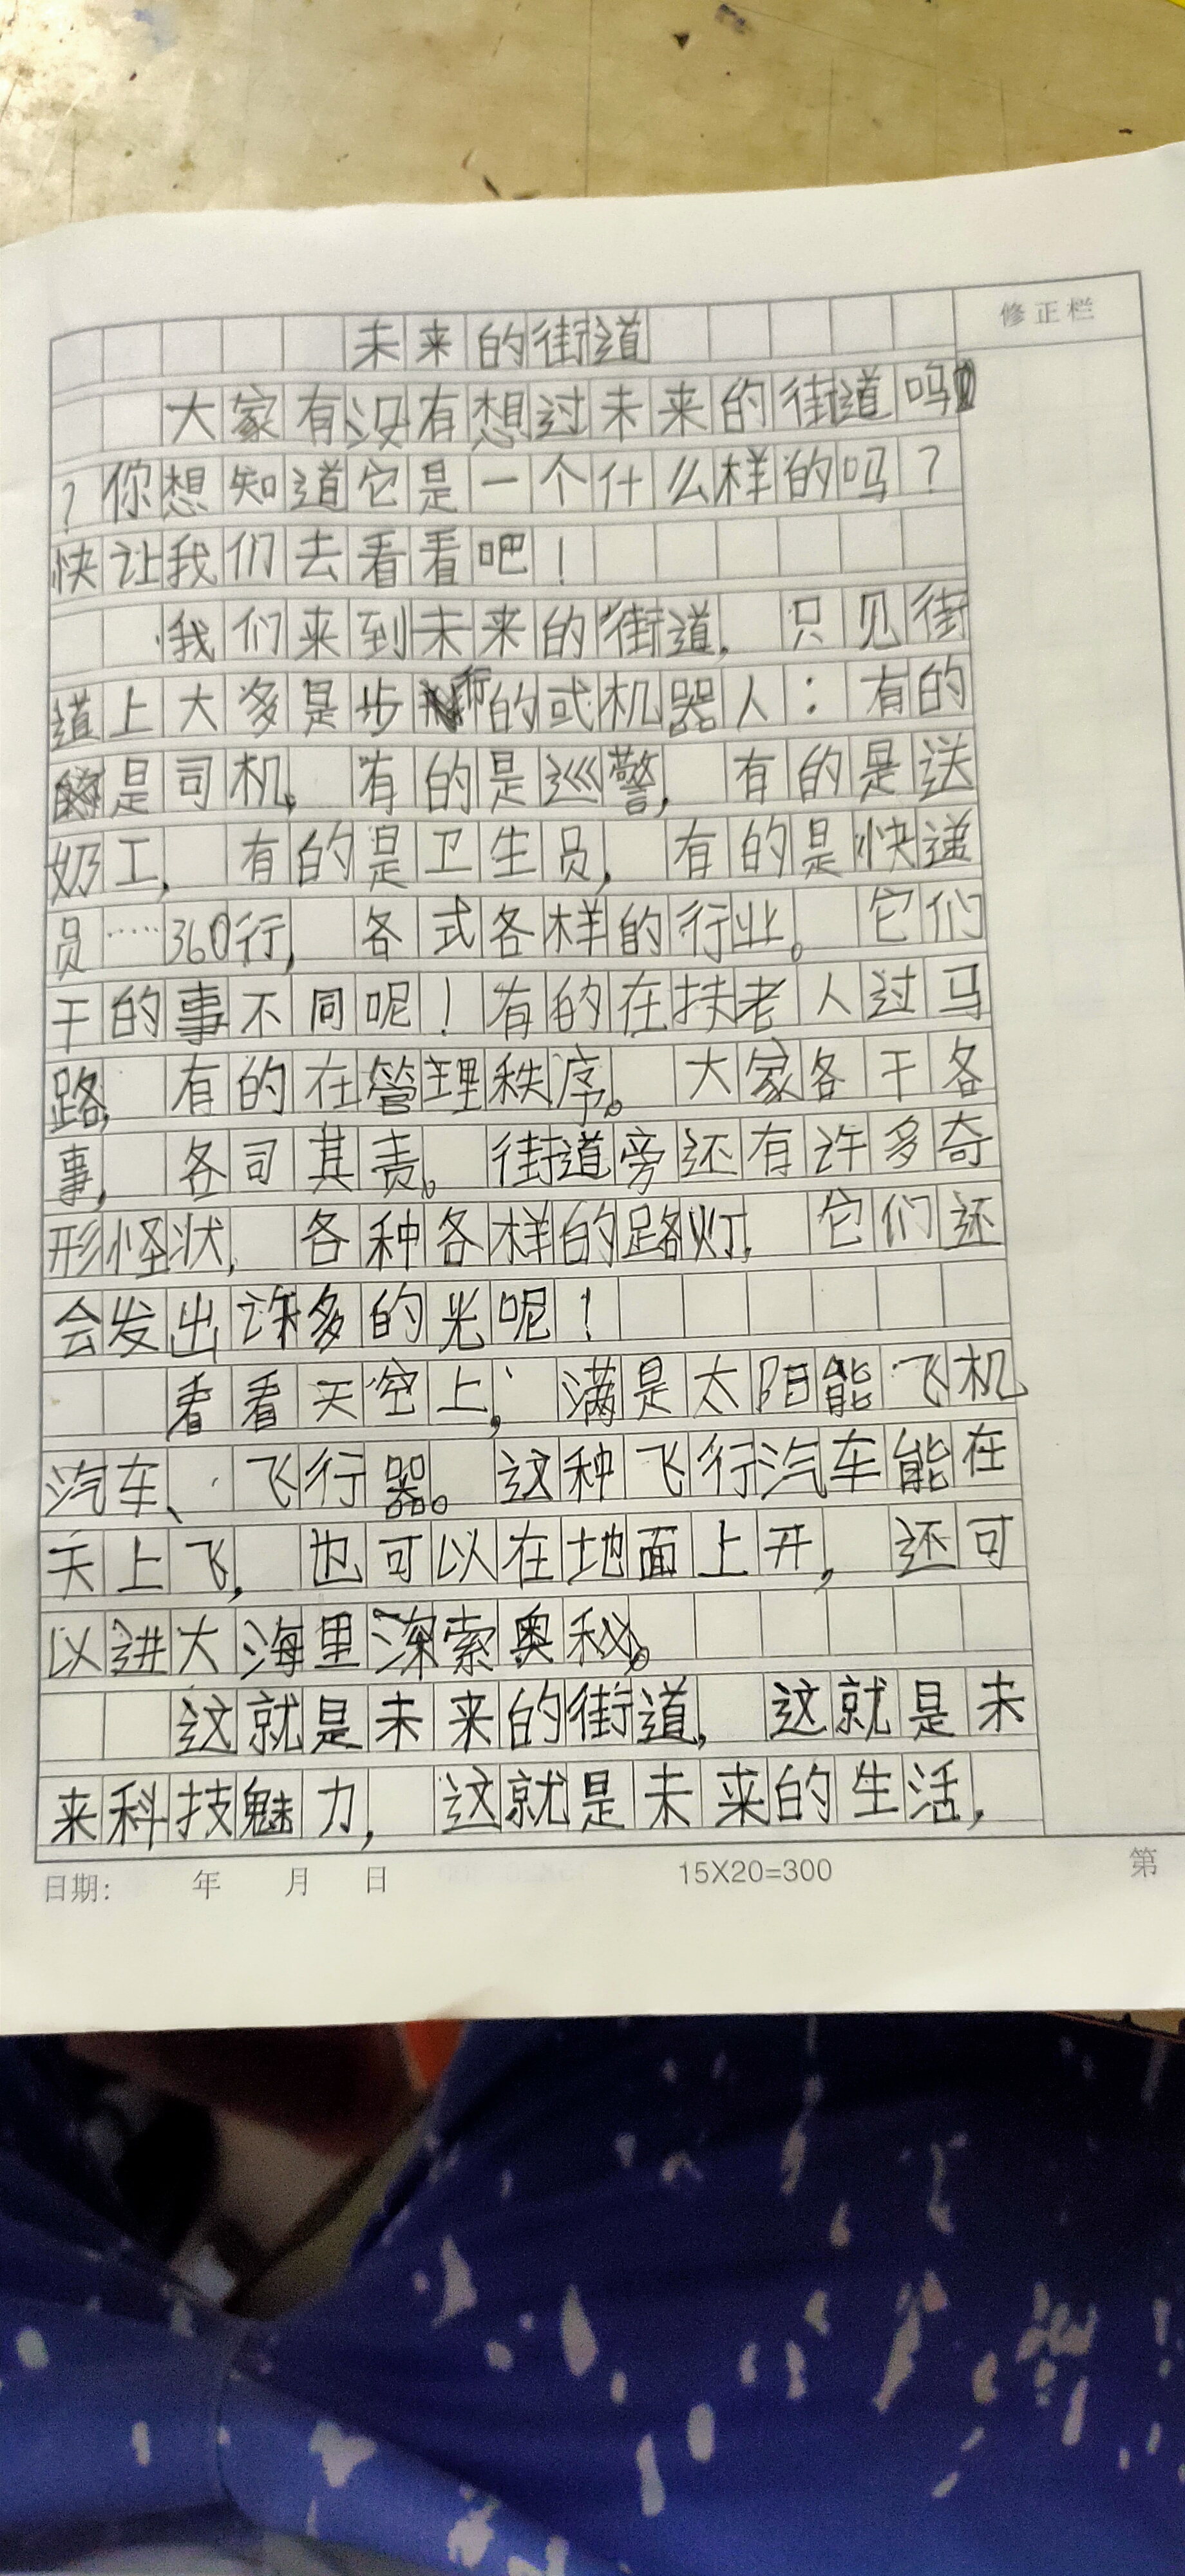 修正栏
未来的街道
大家有没有想过未来的街道吗
？你想知道它是一个什么样的吗？
快让我们去看看吧！
我们来到未来的街道，只见街
道上大多是步行的或机器人：有的
是司机，有的是巡警，有的是送
奶工，有的是卫生员，有的是快递
员……360行，各式各样的行业。它们
干的事不同呢！有的在扶老人过马
路，有的在管理秩序。大家各干各
事，各司其责。街道旁还有许多奇
形怪状，各种各样的路灯，它们还
会发出许多的光呢！
看看天空上，满是太阳能飞机
汽车、飞行器。这种飞行汽车能在
天上飞，也可以在地面上开，还可
以进大海里深索奥秘。
这就是未来的街道，这就是未
来科技魅力，这就是未来的生活，
日期： 年 月 日 15X20=300 第